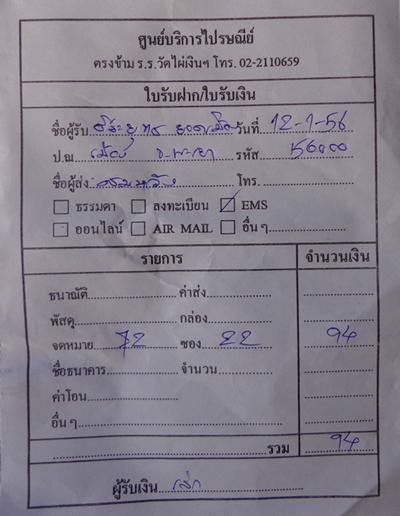 ศูนย์บริการไปรษณีย์
ตรงข้าม ร.ร.วัดไผ่เงินฯ โทร. 02-2110659
ใบรับฝาก/ใบรับเงิน
ชื่อผู้รับ วันที่ 12-1-56
ป.ณ. เมือง จ.พะเยา รหัส 56000
ชื่อผู้ส่ง โทร.
ธรรมดา ลงทะเบียน EMS
ออนไลน์ AIR MAIL อื่นๆ
รายการ จำนวนเงิน
ธนาณัติ ค่าส่ง
พัสดุ กล่อง
จดหมาย 72 ซอง 22 94
ชื่อธนาคาร จำนวน
ค่าโอน
อื่น ๆ
รวม 94
ผู้รับเงิน เล็ก